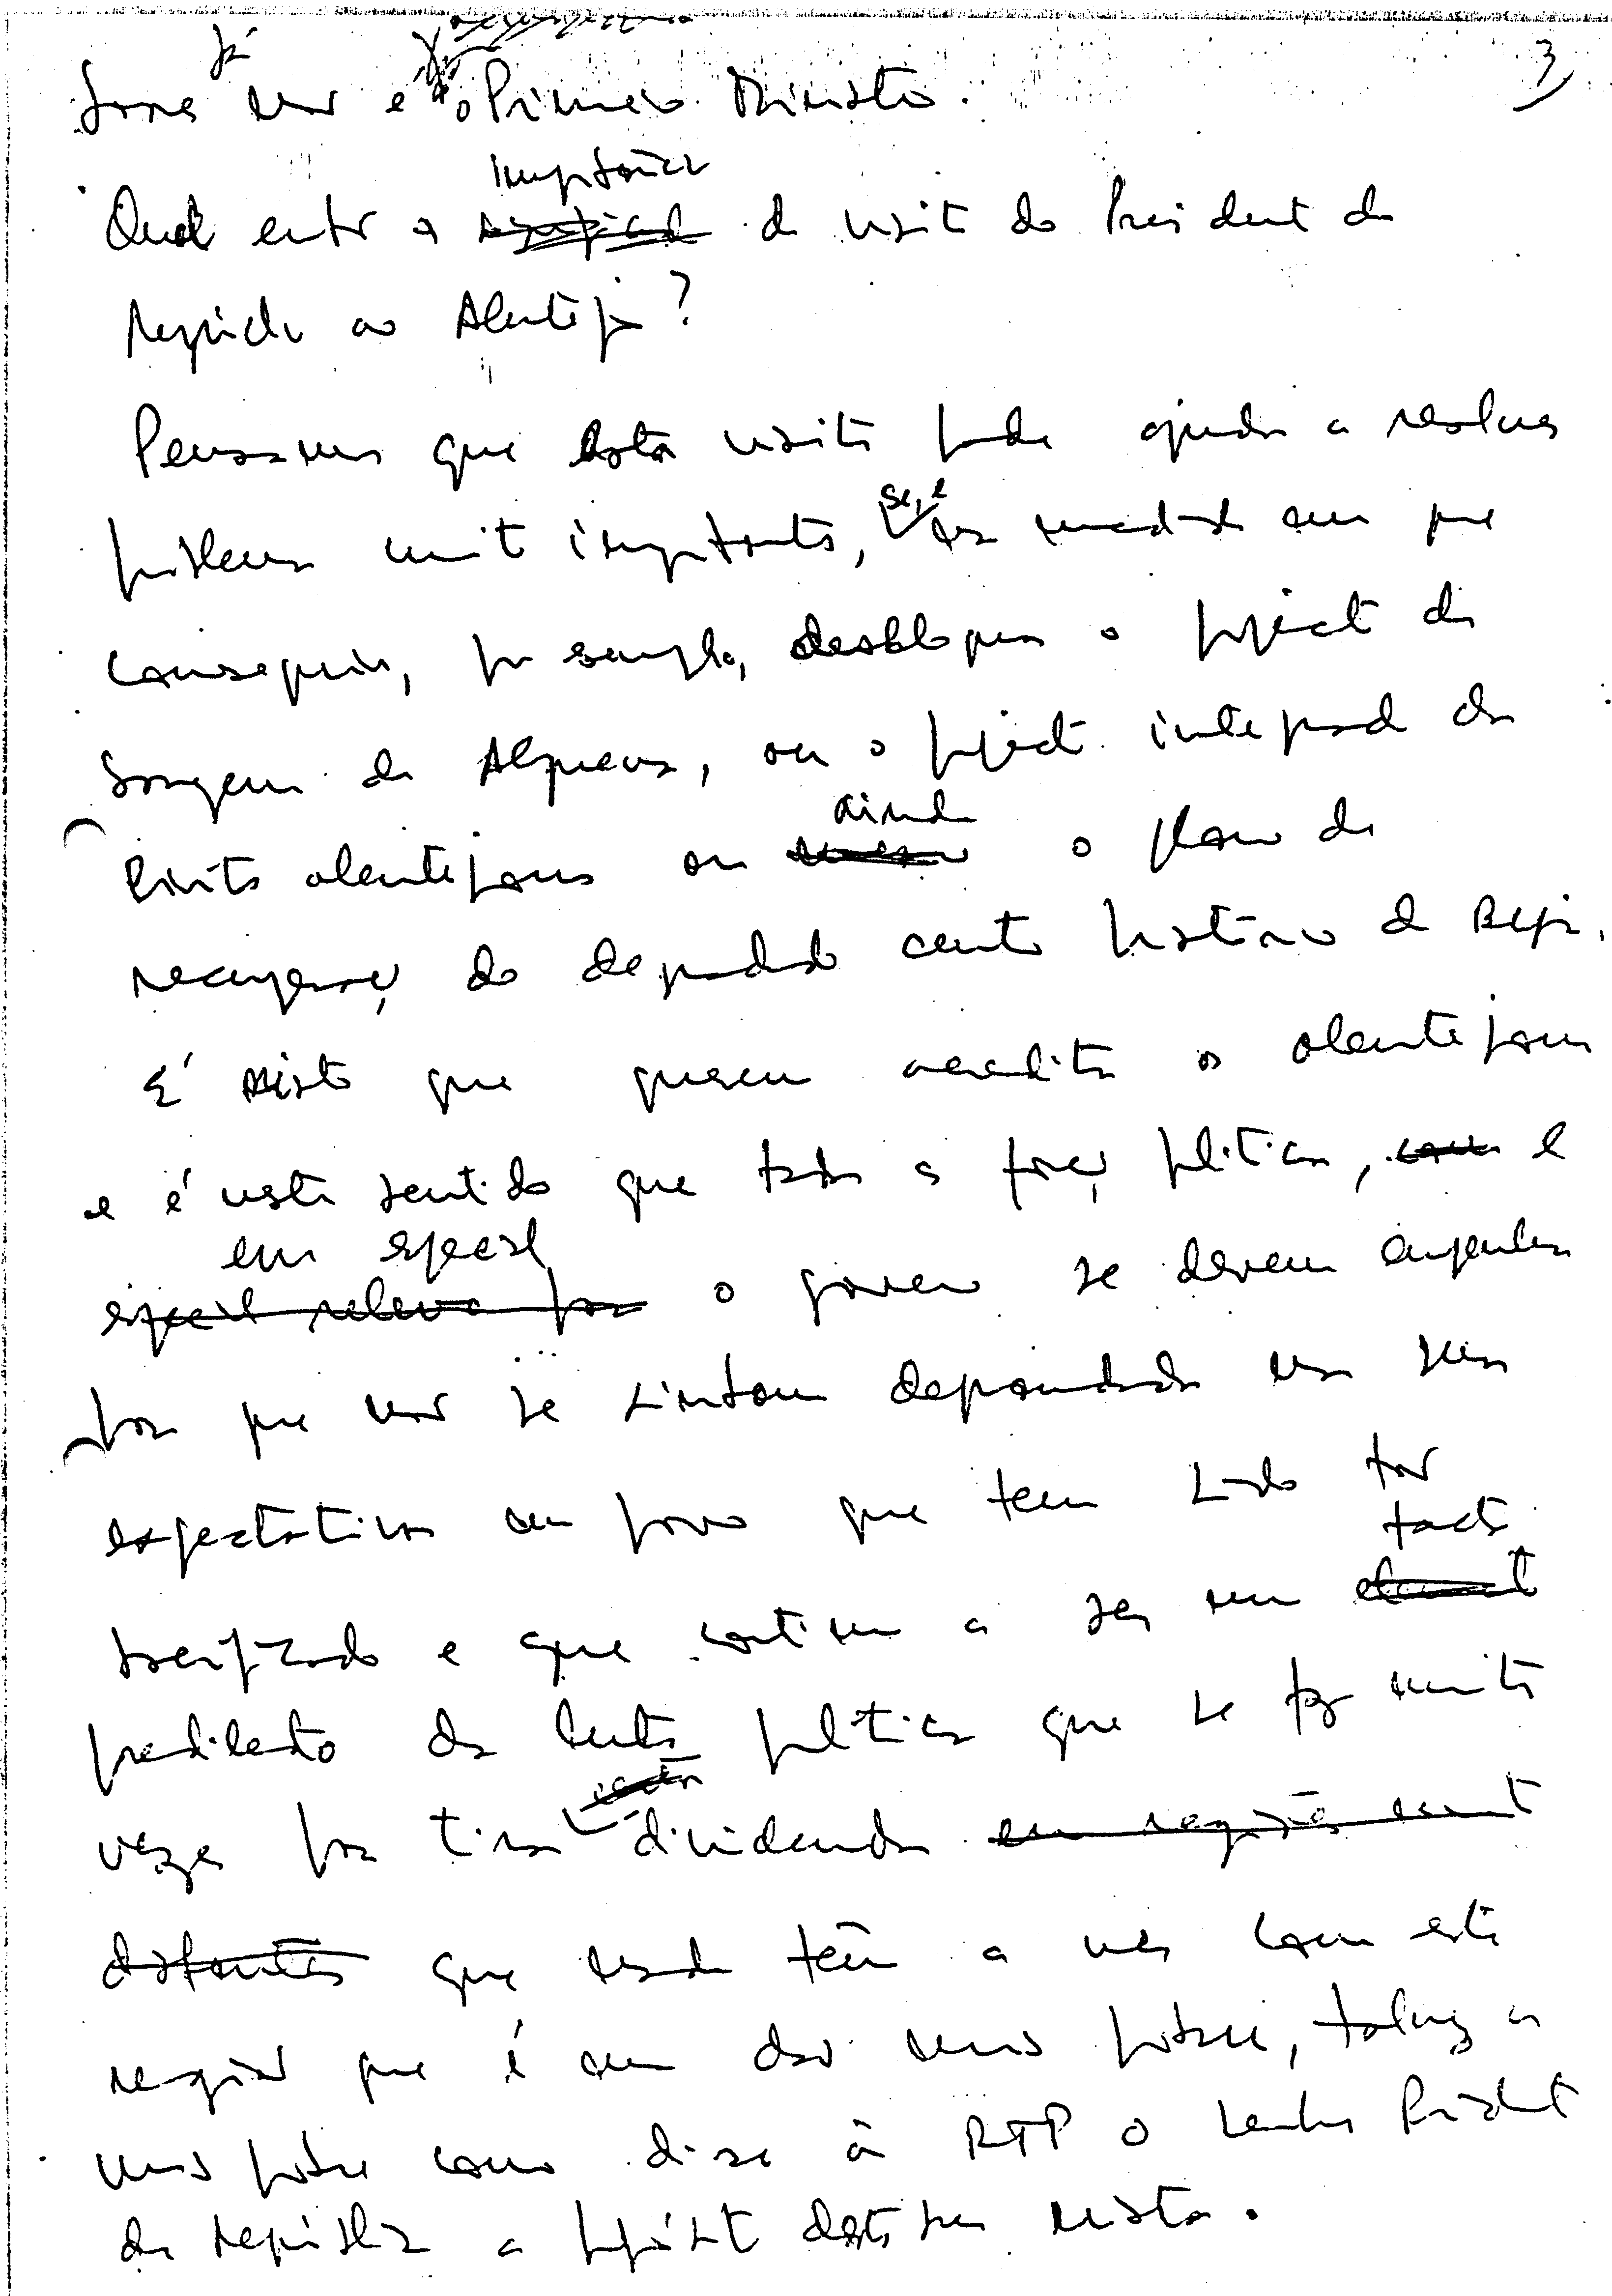 3
já
Soares não é o Primeiro Ministro.
importância
Qual então a da visita do Presidente da
República ao Alentejo?
Pensamos que esta visita pode ajudar a resolver
problemas muito importantes, se, e na medida em que
conseguir, por exemplo, desbloquear o projecto da
barragem de Alqueva, ou o projecto integrado da
ainda
alentejano ou o plano de
recuperação do degradado centro histórico de Beja.
É nisto que querem acreditar os alentejanos
e é neste sentido que todas as forças políticas, e
em especial
o governo se devem empenhar
para que não se sintam defraudadas nas suas
expectativas um povo que tem sido tão
sacrificado e que continua a ser um
predilecto da luta política que se faz muitas
vezes para tirar dividendos
que nada têm a ver com esta
região que é uma das mais pobres, talvez a
mais pobre como disse à RTP o senhor Presidente
da República a propósito desta sua visita.